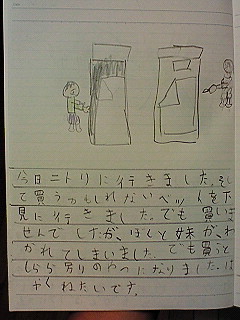 今日ニトリに行きました。そし
て買うかもしれないベットを下
見に行きました。でも買いま
せんでしたが、ぼくと妹がわ
かれてしまいました。でも買うと
したら別りのやつになりました。は
やくねたいです。